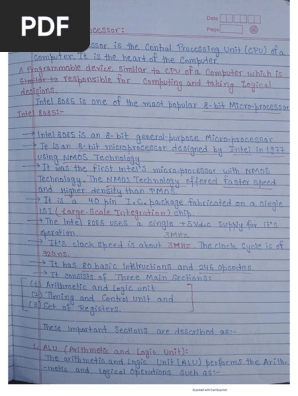 PDF
Date
Page
processor:
ssor is the Central Processing Unit (CPU) of a
Computer. It is the heart of the Computer
A Programmable device similar to CPU of a Computer which is
Similar to responsible for Computing and taking Logical
decisions.
Intel 8085 is one of the most popular 8-bit Micro-processor
Intel 8085:-
→ Intel 8085 is an 8-bit general-purpose Micro-processor
→ It is an 8-bit microprocessor designed by Intel in 1977
using NMOS Technology
→ It was the first Intel's micro-processor with NMOS
Technology. The NMOS Technology offered faster speed
and higher density than PMOS.
→ It is a 40 pin I.C. package fabricated on a single
LSI (Large-Scale Integration) chip.
→ The Intel 8085 uses a single +5Vd.c supply for it's
operation
3MHz
→ It's clock speed is about 3MHz. The clock cycle is of
320ns.
→ It has 80 basic Intstructions and 246 opcodes.
→ It consists of Three Main Sections:
(1) Arithmetic and Logic unit
(2) Timing and Control unit and
(3) Set of Registers.
These important Sections are described as:-
1. ALU (Arithmetic and Logic Unit):-
The arithmetic and Logic Unit (ALU) performs the Arith-
-metic and Logical Operations such as:-
Scanned with CamScanner